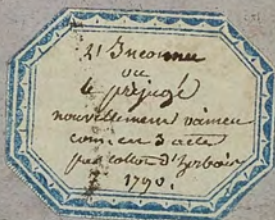 L'Inconnu
ou
le préjugé
nouvellement vaincu
com. en 3 actes
par collot d'herbois
1790.